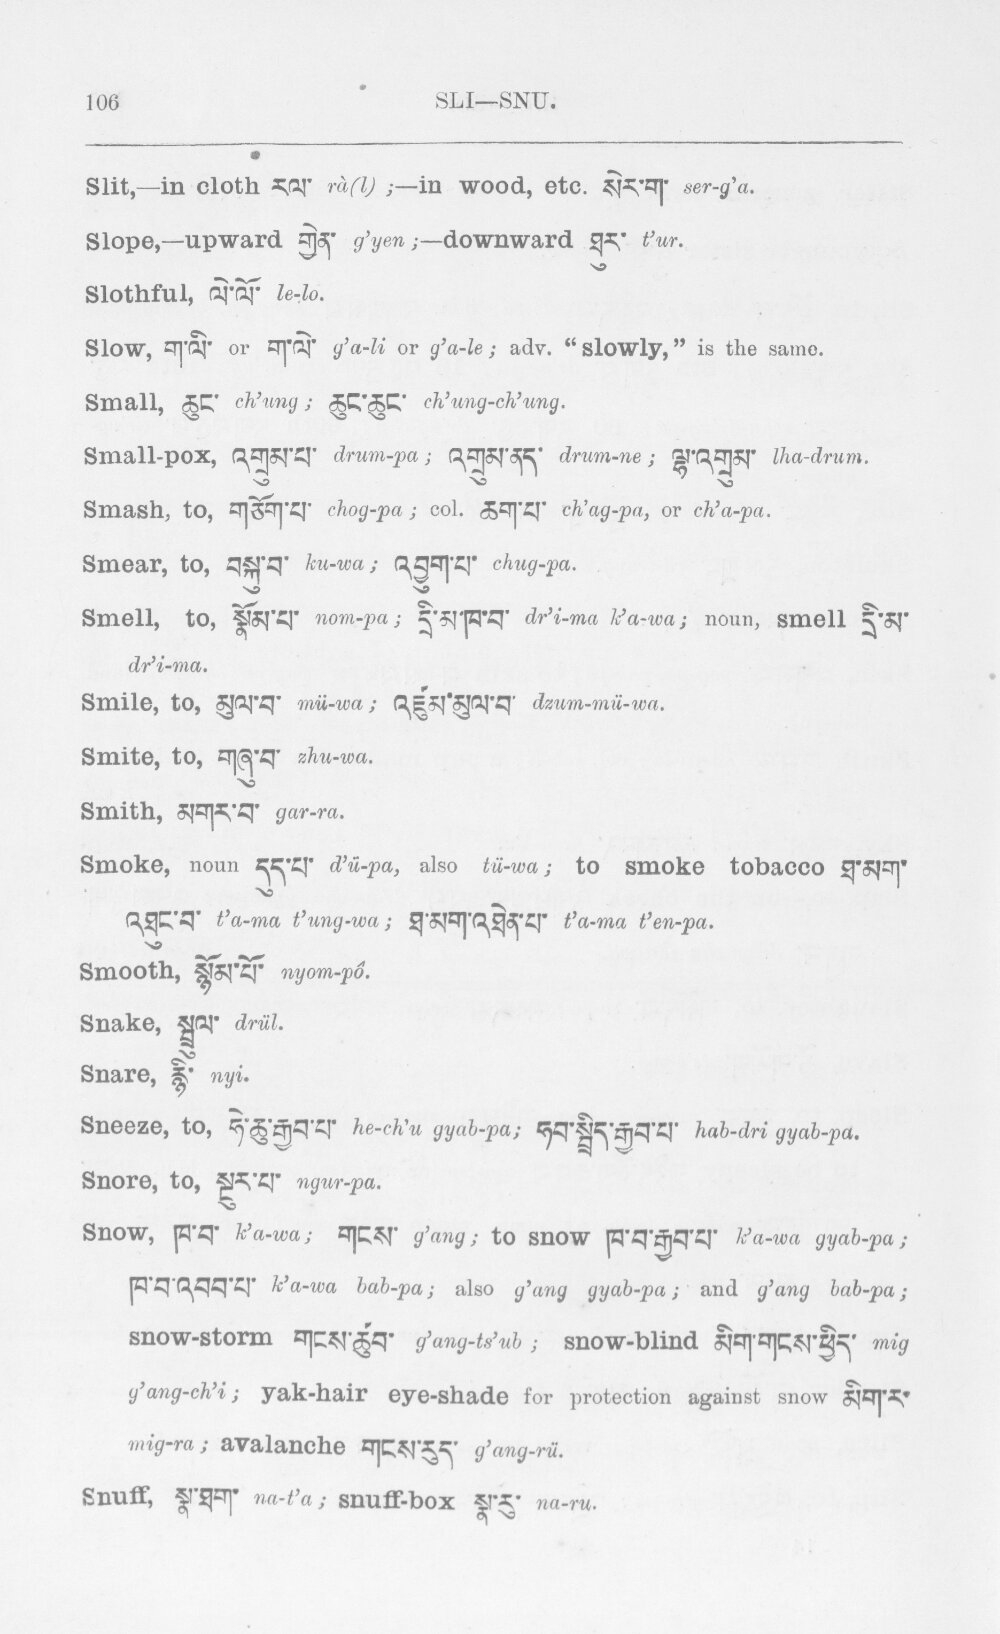 106 SLI—SNU.
Slit,—in cloth རལ་ rà(l) ;—in wood, etc. སེར་ག་ ser-g’a.
Slope,—upward གྱེན་ g’yen ;—downward ཐུར་ t’ur.
Slothful, ལེ་ལོ་ le-lo.
Slow, ག་ལི་ or ག་ལེ་ g’a-li or g’a-le ; adv. “slowly,” is the same.
Small, ཆུང་ ch’ung ; ཆུང་ཆུང་ ch’ung-ch’ung.
Small-pox, འགྲུམ་པ་ drum-pa ; འགྲུམ་ནད་ drum-ne ; ལྷ་འགྲུམ་ lha-drum.
Smash, to, གཅོག་པ་ chog-pa ; col. ཆག་པ་ ch’ag-pa, or ch’a-pa.
Smear, to, བསྐུ་བ་ ku-wa ; འབྱུག་པ་ chug-pa.
Smell, to, སྣོམ་པ་ nom-pa ; དྲི་མ་ཁ་བ་ dr’i-ma k’a-wa ; noun, smell དྲི་མ་
dr’i-ma.
Smile, to, མུལ་བ་ mü-wa ; འཛུམ་མུལ་བ་ dzum-mü-wa.
Smite, to, གཞུ་བ་ zhu-wa.
Smith, མགར་བ་ gar-ra.
Smoke, noun དུད་པ་ d’ü-pa, also tü-wa ; to smoke tobacco ཐ་མག་
འཐུང་བ་ t’a-ma t’ung-wa ; ཐ་མག་འཐེན་པ་ t’a-ma t’en-pa.
Smooth, སྙོམ་པོ་ nyom-pô.
Snake, སྦྲུལ་ drül.
Snare, རྙི་ nyi.
Sneeze, to, ཧེ་ཆུ་རྒྱབ་པ་ he-ch’u gyab-pa; ཧབ་སྦྲིད་རྒྱབ་པ་ hab-dri gyab-pa.
Snore, to, སྔུར་པ་ ngur-pa.
Snow, ཁ་བ་ k’a-wa ; གངས་ g’ang ; to snow ཁ་བ་རྒྱབ་པ་ k’a-wa gyab-pa ;
ཁ་བ་འབབ་པ་ k’a-wa bab-pa ; also g’ang gyab-pa ; and g’ang bab-pa ;
snow-storm གངས་ཚུབ་ g’ang-ts’ub ; snow-blind མིག་གངས་ཕྱིད་ mig
g’ang-ch’i ; yak-hair eye-shade for protection against snow མིག་ར་
mig-ra ; avalanche གངས་རུད་ g’ang-rü.
Snuff, སྣ་ཐག་ na-t’a ; snuff-box སྣ་རུ་ na-ru.